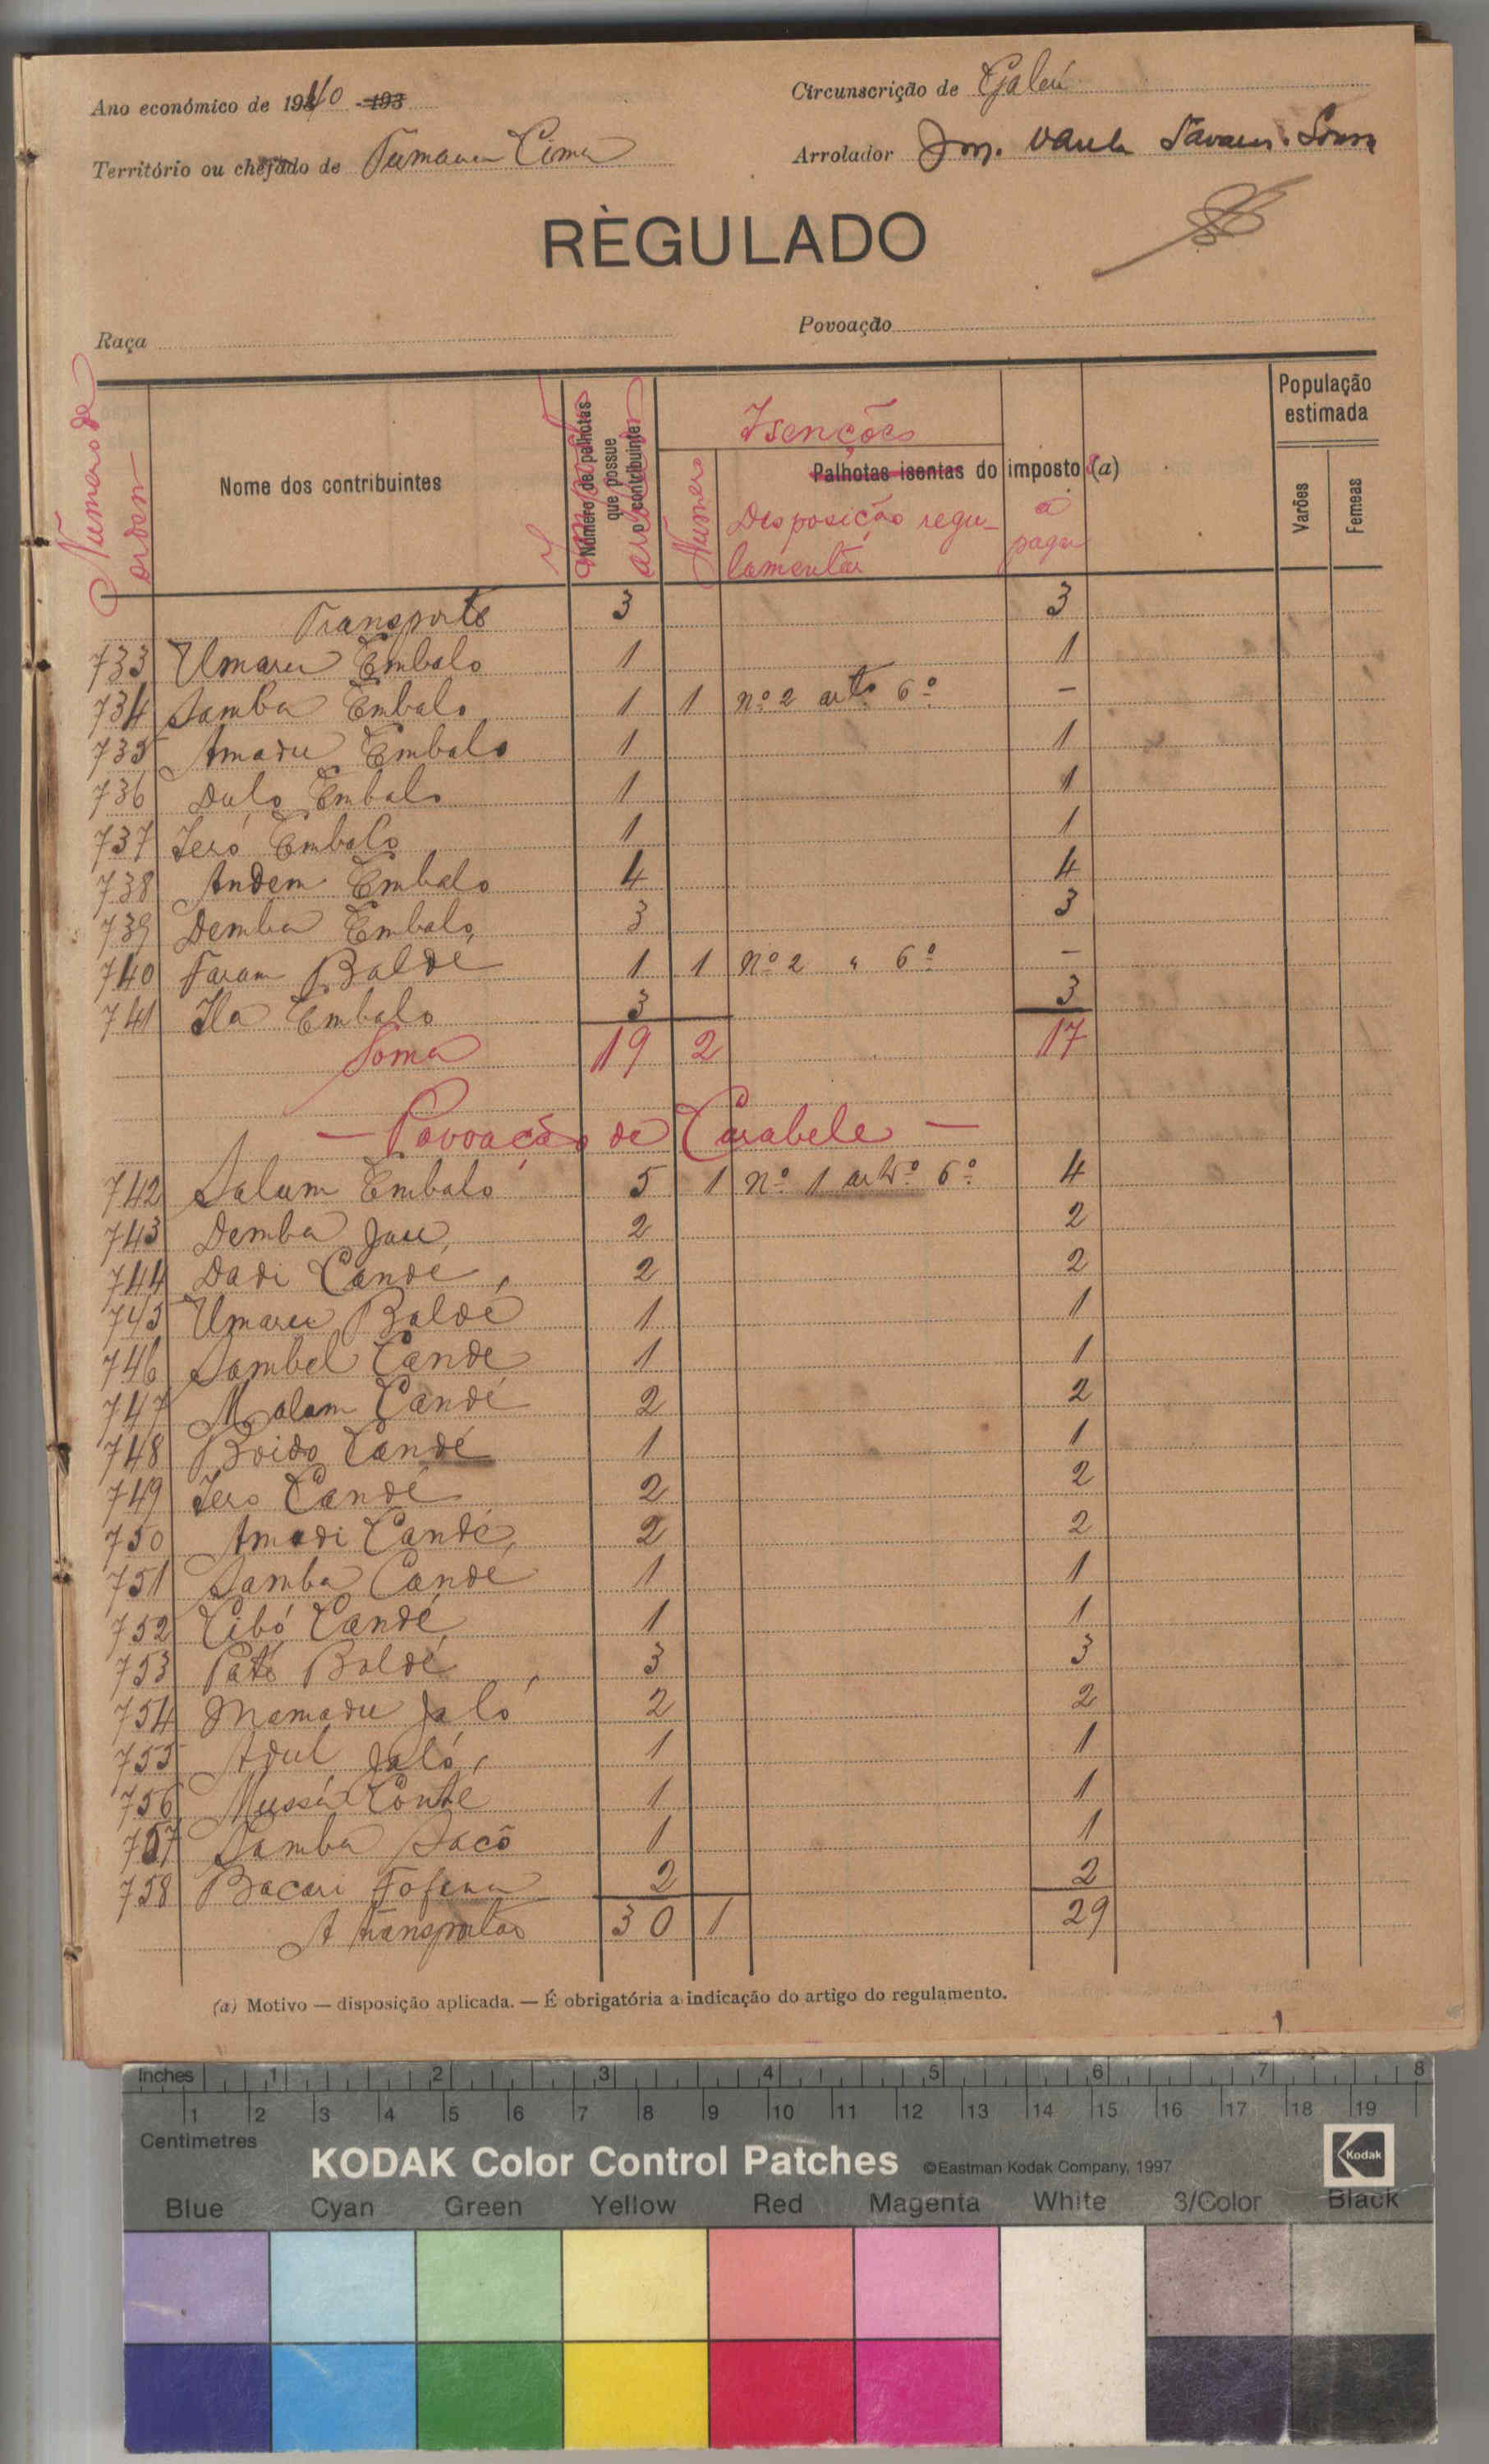 Ano económico de 1940 -193
Circunscrição de Gabú
Território ou chefado de Tumana Cima
Arrolador
RÈGULADO
Raça
Povoação
Numero de ordem
Nome dos contribuintes
Número de palhotas que possue o contribuinte
Impostos arrolados
Isenções
Numero
Palhotas isentas do imposto (a)
Desposição regulamentar
a pagar
População estimada
Varões
Femeas
Transporte 3 3
733 Umaru Embalo 1 1
734 Samba Embalo 1 1 nº 2 artº 6º -
735 Amadu Embalo 1 1
736 Dulo Embalo 1 1
737 Iero Embalo 1 1
738 Andem Embalo 4 4
739 Demba Embalo 3 3
740 Faram Baldé 1 1 nº 2 " 6º -
741 Ila Embalo 3 3
Soma 19 2 17
— Povoação de Carabele —
742 Salum Embaló 5 1 nº 1 artº 6º 4
743 Demba Jau 2 2
744 Dadi Cande 2 2
745 Umaru Baldé 1 1
746 Sambel Cande 1 1
747 Malam Candé 2 2
748 Boido Candé 1 1
749 Iero Candé 2 2
750 Amadi Candé 2 2
751 Samba Candé 1 1
752 Cibó Candé 1 1
753 Paté Baldé 3 3
754 Mamadu Jaló 2 2
755 Adul Jaló 1 1
756 Mussá Conté 1 1
757 Samba Sacô 1 1
758 Bacari Fofana 2 2
A transportar 30 1 29
(a) Motivo — disposição aplicada. — É obrigatória a indicação do artigo do regulamento.
Inches 1 2 3 4 5 6 7 8
1 2 3 4 5 6 7 8 9 10 11 12 13 14 15 16 17 18 19
Centimetres
KODAK Color Control Patches ©Eastman Kodak Company, 1997 Kodak
Blue Cyan Green Yellow Red Magenta White 3/Color Black